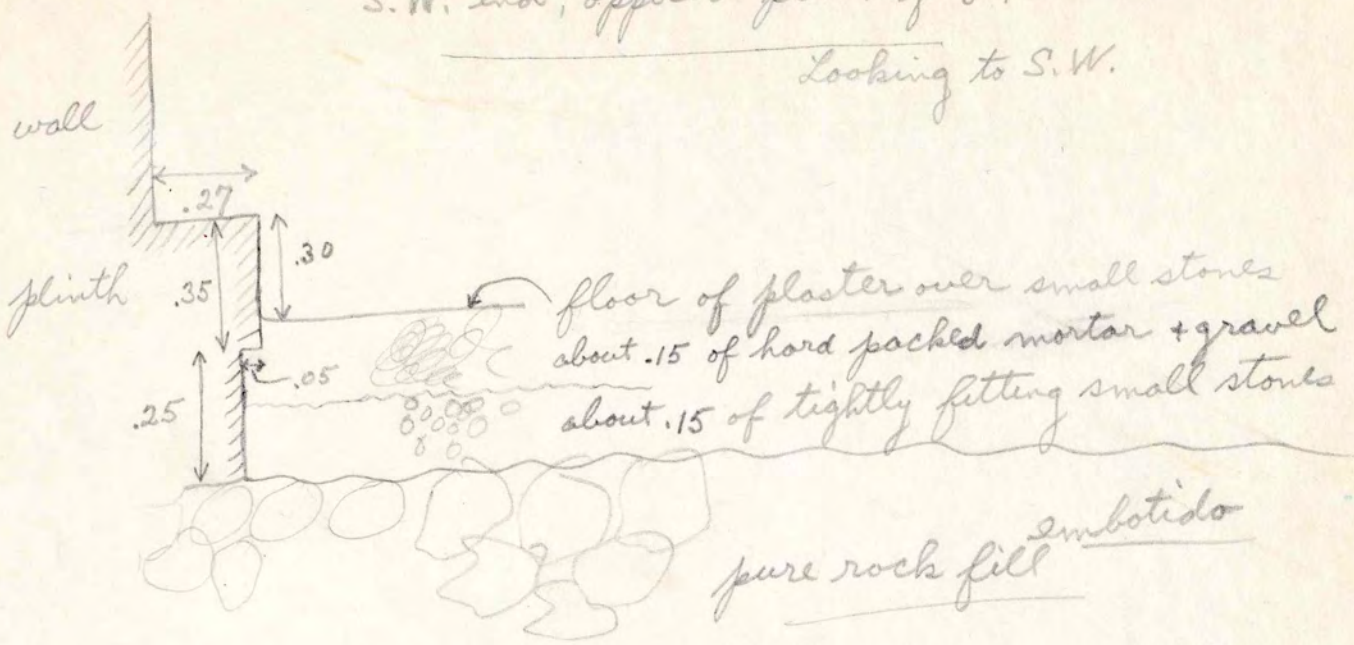 S.W. end,
Looking to S.W.
wall
.27
.30
plinth
.35
floor of plaster over small stones
about .15 of hard packed mortar + gravel
.05
.25
about .15 of tightly fitting small stones
embotido
pure rock fill